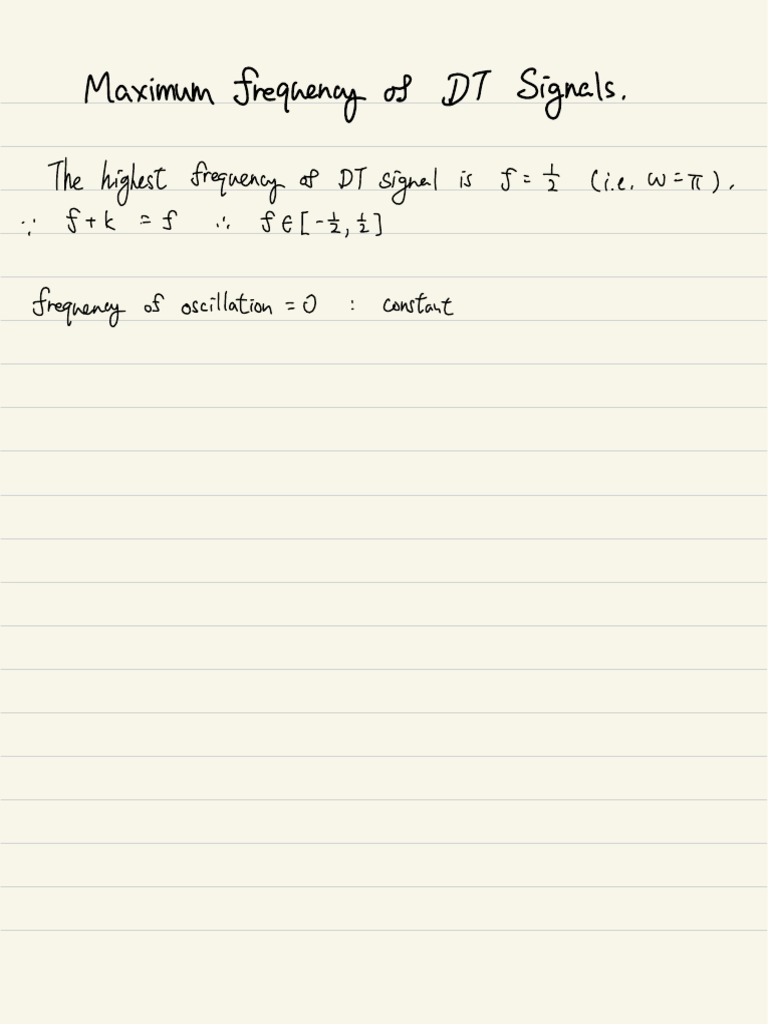 Maximum frequency of DT Signals.
The highest frequency of DT signal is f = 1/2 (i.e. ω = π).
∵ f + k = f ∴ f ∈ [-1/2, 1/2]
frequency of oscillation = 0 : constant